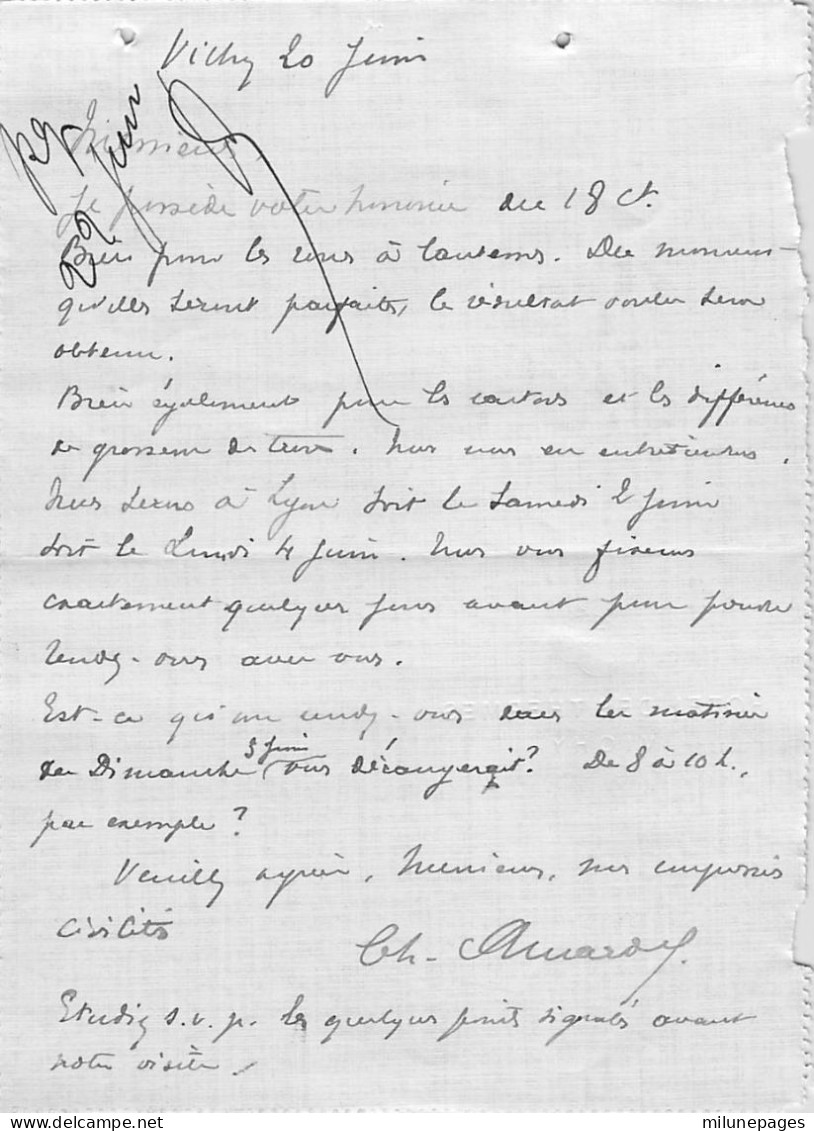 Vichy 20 Juin
Monsieur,
Je possède votre honorée du 18 Ct.
Bien pour les à lanternes. Du moment
qu'elles seront parfaites, le résultat voulu sera
obtenu.
Bien également pour les cartons et les différences
de grosseur de . Nous nous en entretiendrons.
Nous serons à Lyon soit le Samedi 2 Juin
soit le Lundi 4 Juin. Nous vous fixerons
exactement quelques jours avant pour prendre
rendez-vous avec vous.
Est-ce qu'un rendez-vous dans la matinée
du Dimanche 3 Juin vous dérangerait? De 8 à 10 h.,
par exemple?
Veuillez agréer, Monsieur, nos empressées
civilités
Ch.
Etudiez s.v.p. les quelques points signalés avant
notre visite.
29 Juin
milunepages